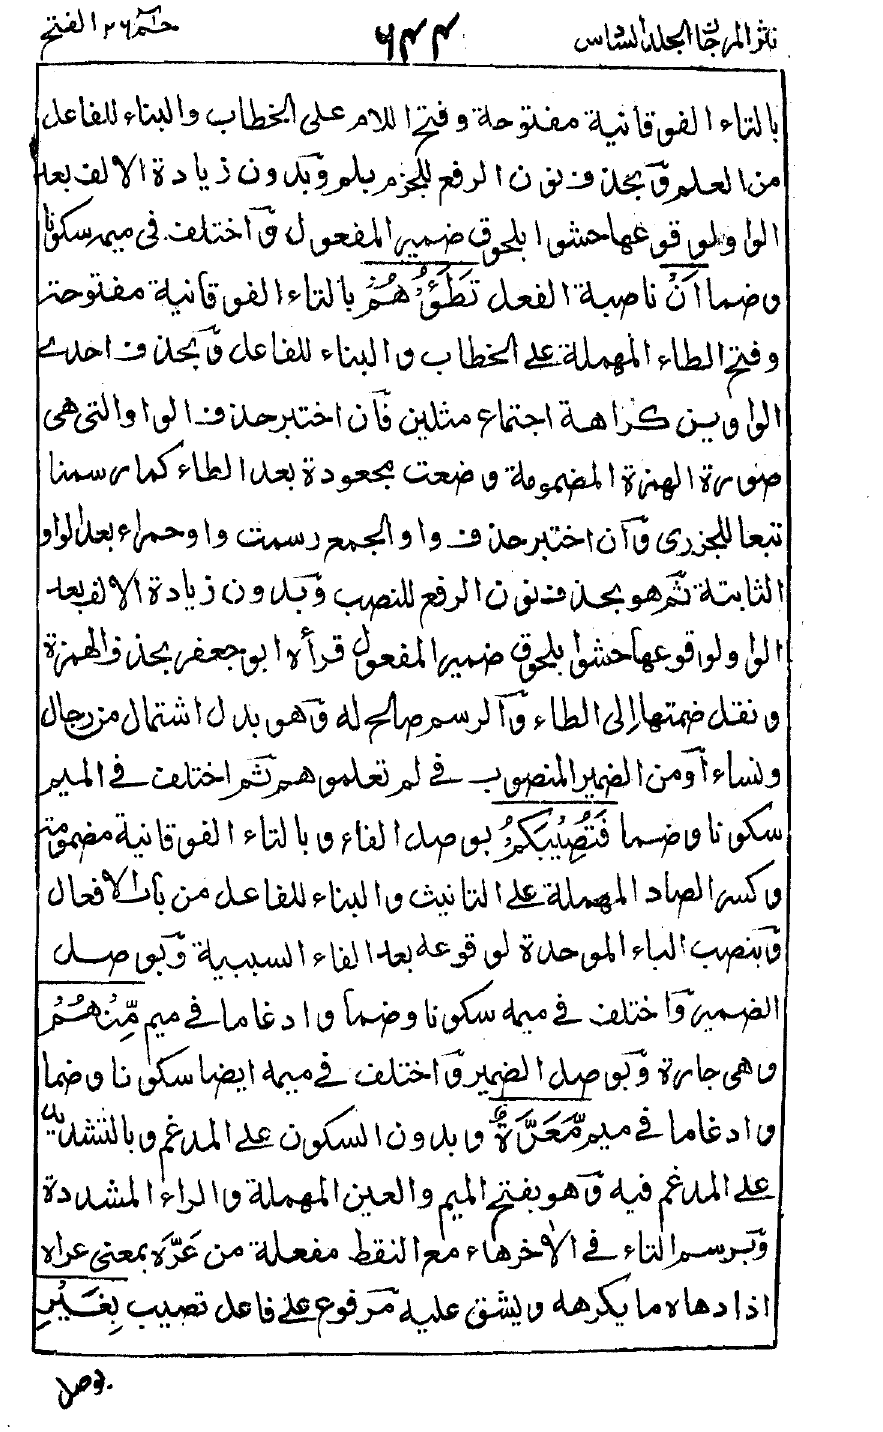 نثر المرجان المجلد السادس ٦٤٤ حٰمٓ ٢٦ الفتح
بالتاء الفوقانية مفتوحة وفتح اللام على الخطاب والبناء للفاعل
من العلم وَبحذف نون الرفع للجزم بلم وَبدون زيادة الالف بعد
الواو لوقوعها حشوا بلحوق ضمير المفعول وَاختلف فى ميمه سكونا
وضما اَنْ ناصبة الفعل تَطَـُٔوْهُمْ بالتاء الفوقانية مفتوحة
وفتح الطاء المهملة على الخطاب والبناء للفاعل وَبحذف احدى
الواوين كراهة اجتماع مثلين فَان اختير حذف الواو التى هى
صورة الهمزة المضمومة وضعت مجعودة بعد الطاء كما رسمنا
تبعا للجزرى وَان اختير حذف واو الجمع رسمت واو حمراء بعد الواو
الثابتة ثم هو بحذف نون الرفع للنصب وَبدون زيادة الالف بعد
الواو لوقوعها حشوا بلحوق ضمير المفعول قرأه ابو جعفر بحذف الهمزة
ونقل ضمتها الى الطاء وَالرسم صالح له وَهو بدل اشتمال من رجال
ونساء اَومن الضمير المنصوب فى لم تعلموهم ثم اختلف فى الميم
سكونا وضما فَتُصِيْبَكُمْ بوصل الفاء وبالتاء الفوقانية مضمومة
وكسر الصاد المهملة على التانيث والبناء للفاعل من باب الافعال
وَبنصب الباء الموحدة لوقوعه بعد الفاء السببية وَبوصل
الضمير وَاختلف فى ميمه سكونا وضما وادغاما فى ميم مِّنْهُمْ
وهى جارة وَبوصل الضمير وَاختلف فى ميمه ايضا سكونا وضما
وادغاما فى ميم مَّعَرَّةٌ وبدون السكون على المدغم وبالتشديد
على المدغم فيه وَهو بفتح الميم والعين المهملة والراء المشددة
وَبرسم التاء فى الاخر هاء مع النقط مفعلة من عَرَّه بمعنى عراه
اذا دهاه ما يكرهه ويشق عليه مَرفوع على فاعل تصيب بِغَيْرِ
بوصل